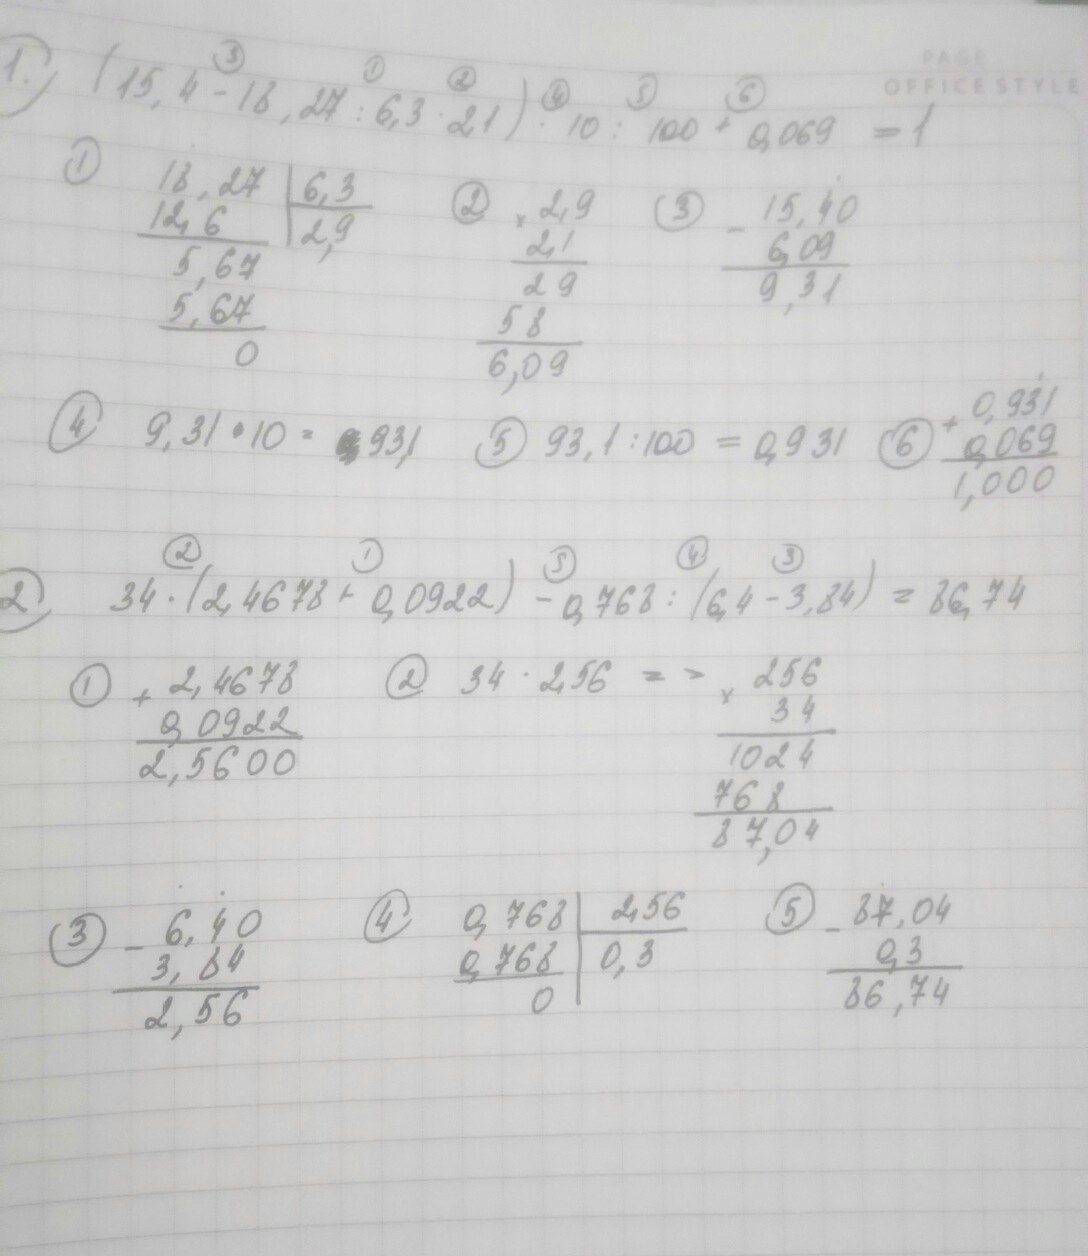 PAGE
OFFICE STYLE
③ ① ② ④ ⑤ ⑥
1.) (15,4 - 18,27 : 6,3 · 2,1) · 10 : 100 + 0,069 = 1
① 18,27 | 6,3
12,6 | 2,9
5,67
5,67
0
② × 2,9
2,1
29
58
6,09
③ - 15,40
6,09
9,31
④ 9,31 · 10 = 93,1
⑤ 93,1 : 100 = 0,931
⑥ + 0,931
0,069
1,000
② ① ⑤ ④ ③
2.) 34 · (2,4678 + 0,0922) - 0,768 : (6,4 - 3,84) = 86,74
① + 2,4678
0,0922
2,5600
② 34 · 2,56 = > × 256
34
1024
768
87,04
③ - 6,40
3,84
2,56
④ 0,768 | 2,56
0,768 | 0,3
0
⑤ - 87,04
0,3
86,74